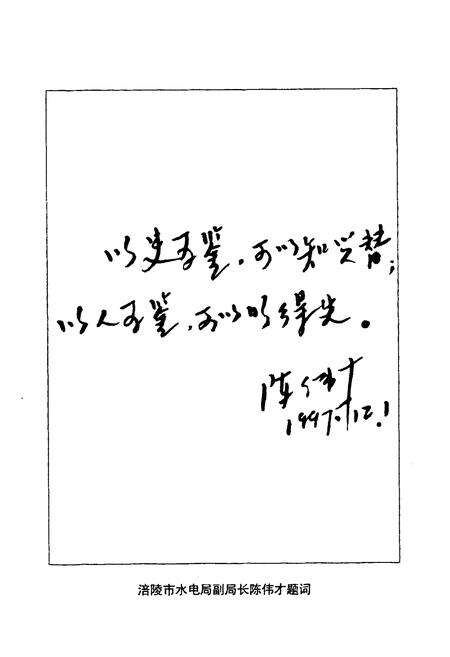 以史为鉴，可以知兴替；
以人为鉴，可以明得失。
陈伟才
1997.12.1
涪陵市水电局副局长陈伟才题词